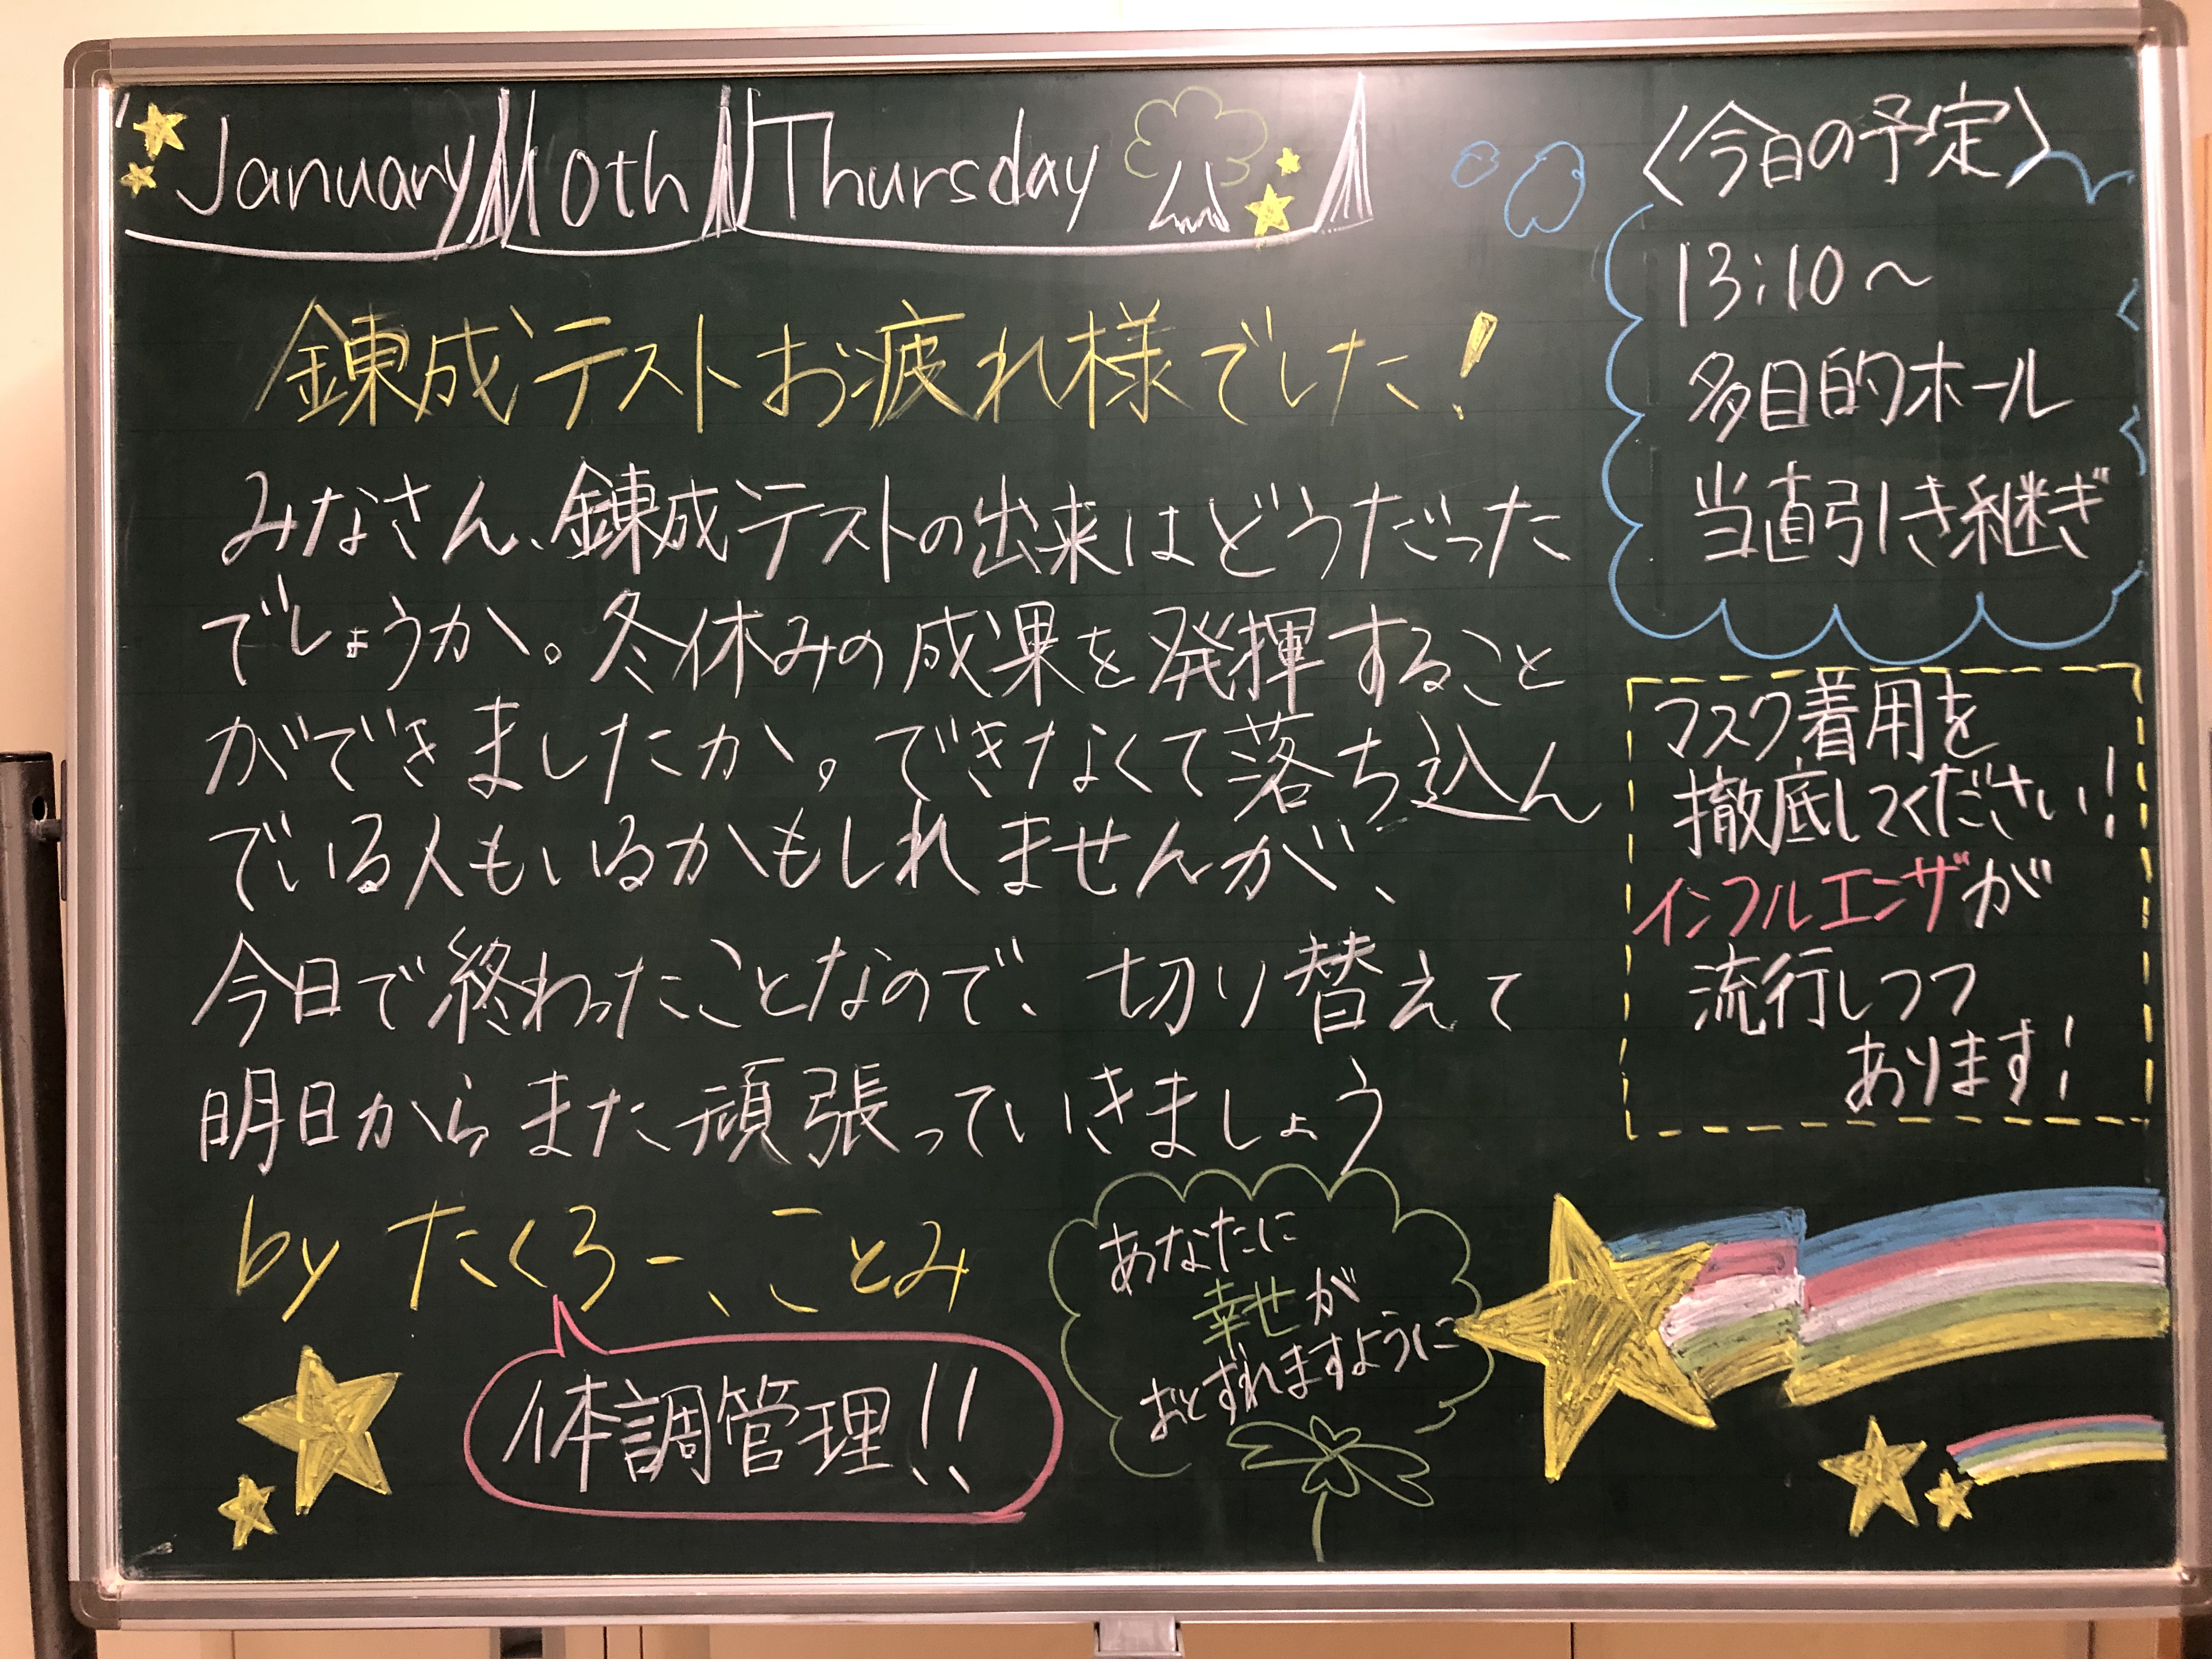 January 10th Thursday
錬成テストお疲れ様でした!
みなさん、錬成テストの出来はどうだった
でしょうか。冬休みの成果を発揮すること
ができましたか。できなくて落ち込ん
でいる人もいるかもしれませんが、
今日で終わったことなので、切り替えて
明日からまた頑張っていきましょう
by たくろー、ことみ
体調管理!!
あなたに
幸せが
おとずれますように
〈今日の予定〉
13:10~
多目的ホール
当直引き継ぎ
マスク着用を
撤底してください!
インフルエンザが
流行しつつ
あります!